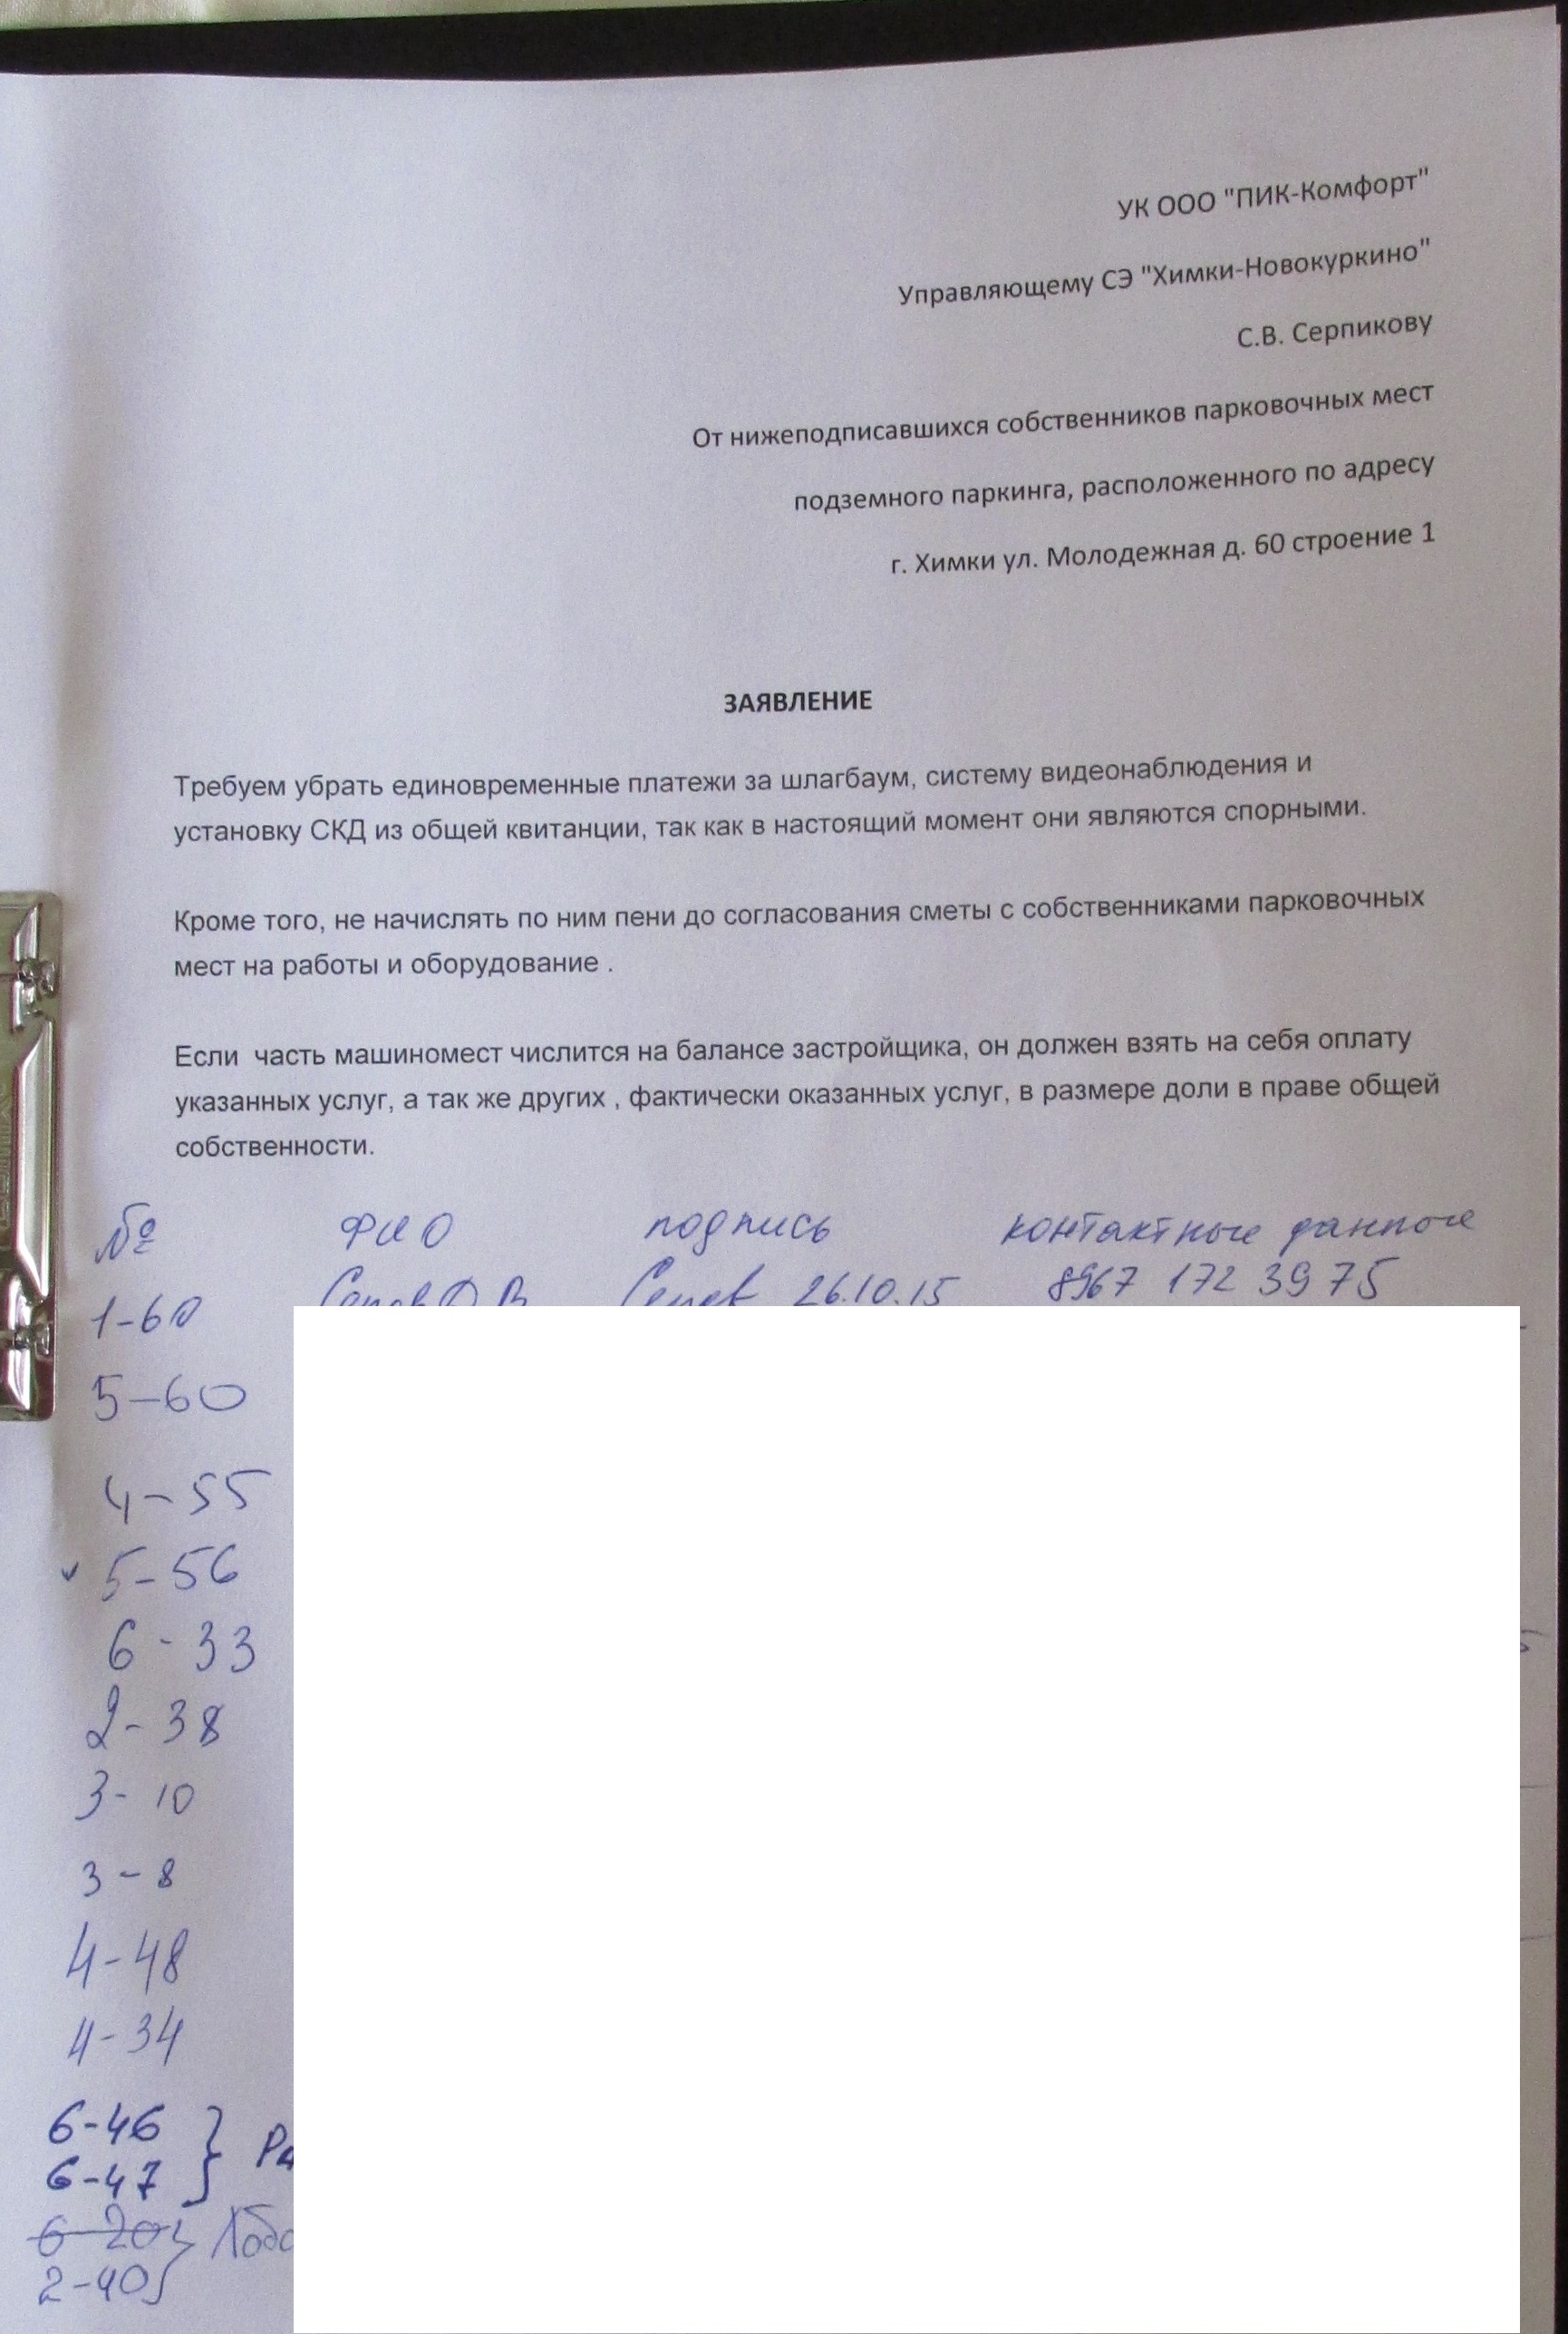 УК ООО "ПИК-Комфорт"
Управляющему СЭ "Химки-Новокуркино"
С.В. Серпикову
От нижеподписавшихся собственников парковочных мест
подземного паркинга, расположенного по адресу
г. Химки ул. Молодежная д. 60 строение 1
ЗАЯВЛЕНИЕ
Требуем убрать единовременные платежи за шлагбаум, систему видеонаблюдения и
установку СКД из общей квитанции, так как в настоящий момент они являются спорными.
Кроме того, не начислять по ним пени до согласования сметы с собственниками парковочных
мест на работы и оборудование .
Если часть машиномест числится на балансе застройщика, он должен взять на себя оплату
указанных услуг, а так же других , фактически оказанных услуг, в размере доли в праве общей
собственности.
№ ФИО подпись контактные данные
1-60 26.10.15 8967 172 39 75
5-60
4-55
5-56
6-33
2-38
3-10
3-8
4-48
4-34
6-46
6-47
6-20
2-40